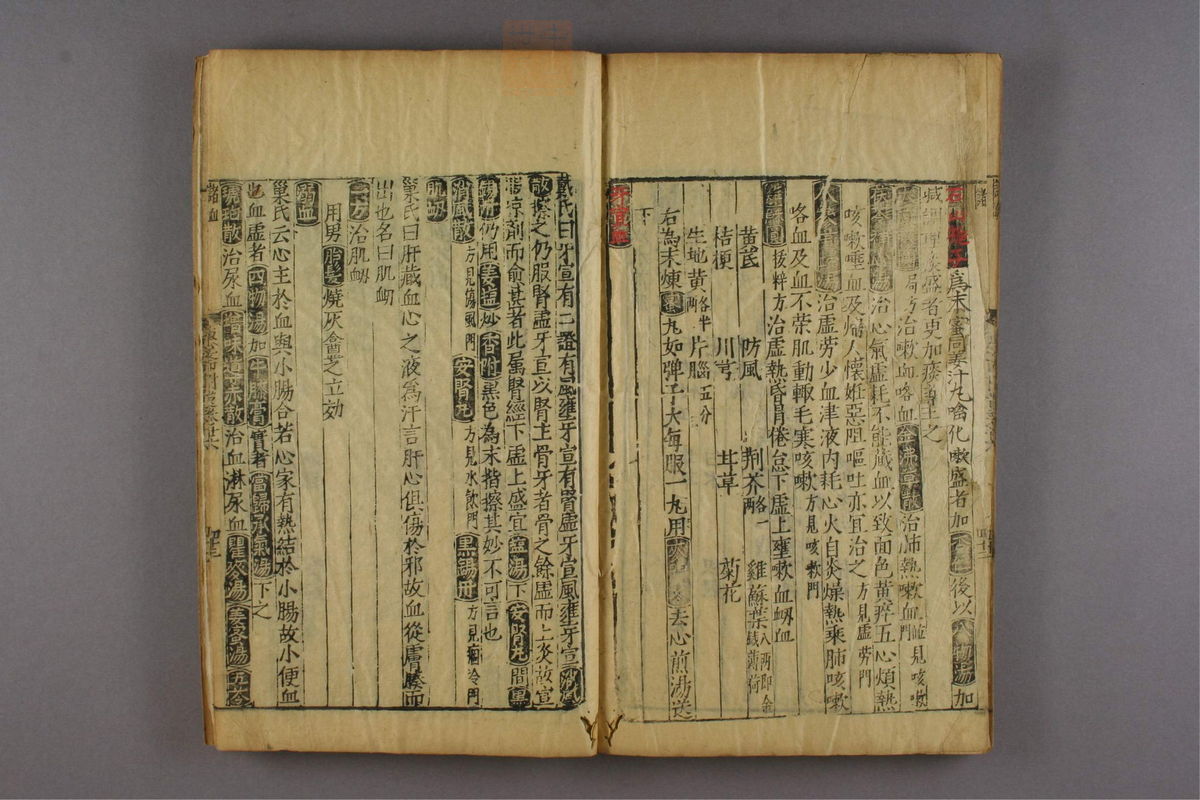 爲末蜜同姜汁丸噙化嗽盛者加 後以八物湯加
局方治嗽血咯血 治肺熱嗽血 見咳嗽門
治心氣虛耗不能藏血以致面色黃瘁五心煩熱
咳嗽唾血及婦人懷姙惡阻嘔吐亦宜治之 方見虛勞門
治虛勞少血津液内耗心火自炎燥熱乘肺咳嗽
咯血及血不荣肌動輙毛寒咳嗽 方見咳嗽門
雞蘇圓 拔粹方治虛熱昏冒倦怠下虛上壅嗽血衂血
黃芪 防風 荆芥各一兩 雞蘇葉八兩即金錢薄荷
桔梗 川芎 甘草 菊花
生地黃各半兩 片腦五分
右為末煉蜜丸如弹子大每服一丸用 去心煎湯送
下
牙宣
戴氏曰牙宣有二證有風壅牙宣有腎虛牙宣風壅牙宣消風
散擦之仍服腎虛牙宣以腎主骨牙者骨之餘虛而上炎故宣
凉劑而愈甚者此虽腎經下虛上盛宜鹽湯下安腎丸間黑
錫丹仍用姜鹽炒香附黑色為末揩擦其妙不可言也
消風散 方見傷風門 安腎丸 方見水飲門 黒錫丹 方見痼冷門
肌衂
巢氏曰肝藏血心之液爲汗言肝心俱傷於邪故血從膚腠而
出也名曰肌衂
一方治肌衂
用男胎髮燒灰畣芝立効
溺血
巢氏云心主於血與小腸合若心家有熱結於小腸故小便血
也血虛者四物湯加牛膝膏實者當歸承氣湯下之
琥珀散治尿血增味導赤散治血淋尿血瞿麦湯姜蜜湯五苓
諸血